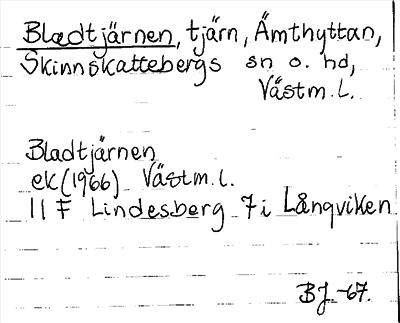 Bladtjärnen, tjärn, Ämthyttan,
Skinnskattebergs sn o. hd,
Västm. L.
Bladtjärnen
ek (1966) Västm. L.
11 F Lindesberg 7i Långviken
BJ -67.